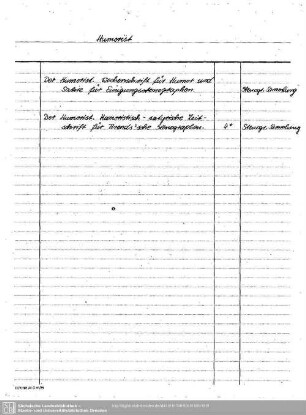 Humorist
Der Humorist. Wochenschrift für Humor und
Satire für Einigungsstenographen. Stenogr. Sammlung
Der Humorist. Humoristisch-satyrische Zeit-
schrift für Stenographen. 4° Stenogr. Sammlung
Sächsische Landesbibliothek -
Staats- und Universitätsbibliothek Dresden